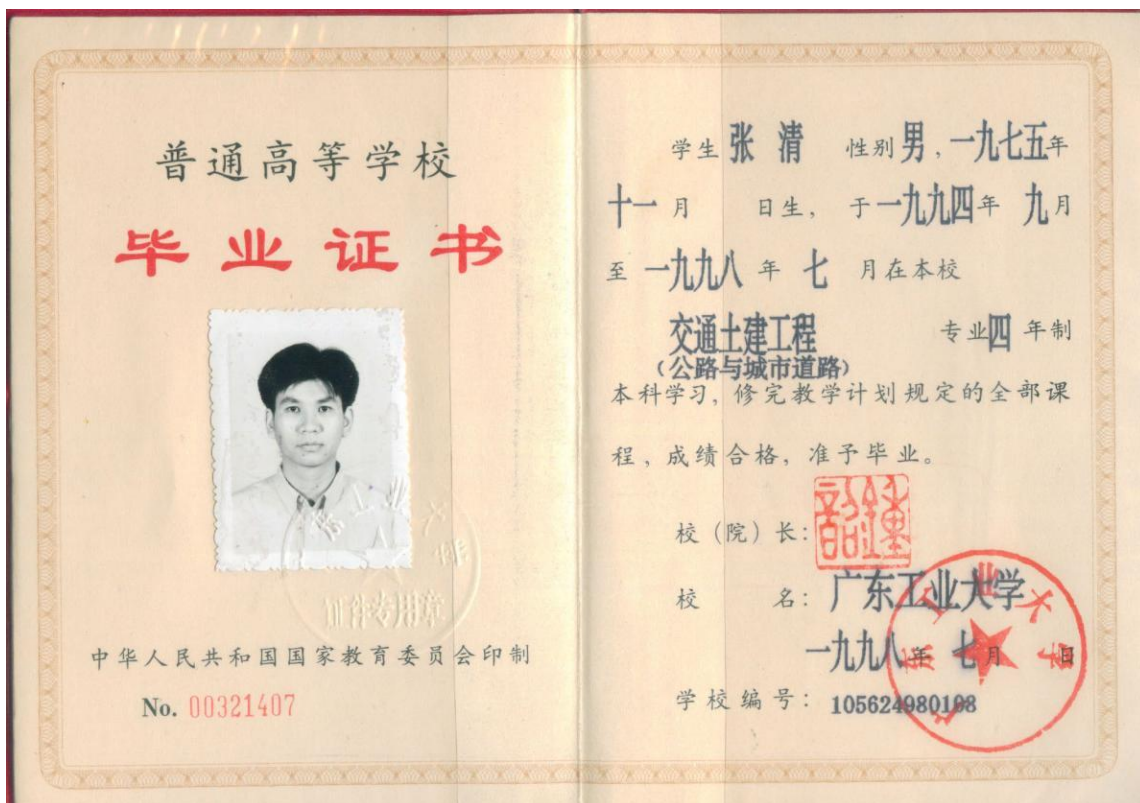 普通高等学校
毕业证书
证件专用章
中华人民共和国国家教育委员会印制
No. 00321407
学生 张 清 性别 男,一九七五年
十一月 日生, 于一九九四年 九月
至 一九九八 年 七 月在本校
交通土建工程 专业四年制
(公路与城市道路)
本科学习, 修完教学计划规定的全部课
程, 成绩合格, 准予毕业。
校(院)长:
校 名: 广东工业大学
一九九八年 七月 日
学校编号: 105624980198
广东工业大学